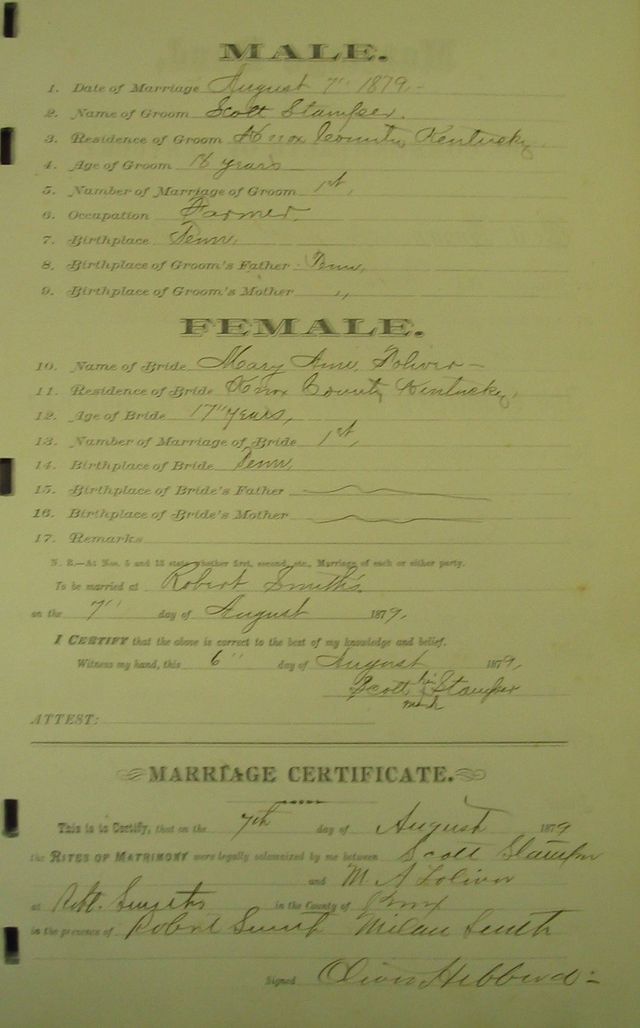 MALE.
1. Date of Marriage August 7" 1879,-
2. Name of Groom Scott Stamper.
3. Residence of Groom Knox County, Kentucky,
4. Age of Groom years
5. Number of Marriage of Groom 1st,
6. Occupation Farmer.
7. Birthplace Tenn,
8. Birthplace of Groom's Father Tenn,
9. Birthplace of Groom's Mother ,,
FEMALE.
10. Name of Bride Mary Ann Toliver -
11. Residence of Bride Knox County Kentucky,
12. Age of Bride 17" years,
13. Number of Marriage of Bride 1st,
14. Birthplace of Bride Tenn,
15. Birthplace of Bride's Father
16. Birthplace of Bride's Mother
17. Remarks
N. B.—At Nos. 5 and 13 state whether first, second, etc., Marriage of each or either party.
To be married at Robert Smith's.
on the 7" day of August 1879,
I CERTIFY that the above is correct to the best of my knowledge and belief.
Witness my hand, this 6" day of August 1879,
his
Scott Stamper
mark
ATTEST:
MARRIAGE CERTIFICATE.
This is to Certify, that on the 7th day of August 1879
the RITES OF MATRIMONY were legally solemnized by me between Scott Stamper
and M A Toliver
at Robt. Smiths in the County of Knox
in the presence of Robert Smith Milan Smith
Signed Oliver Hibbard -